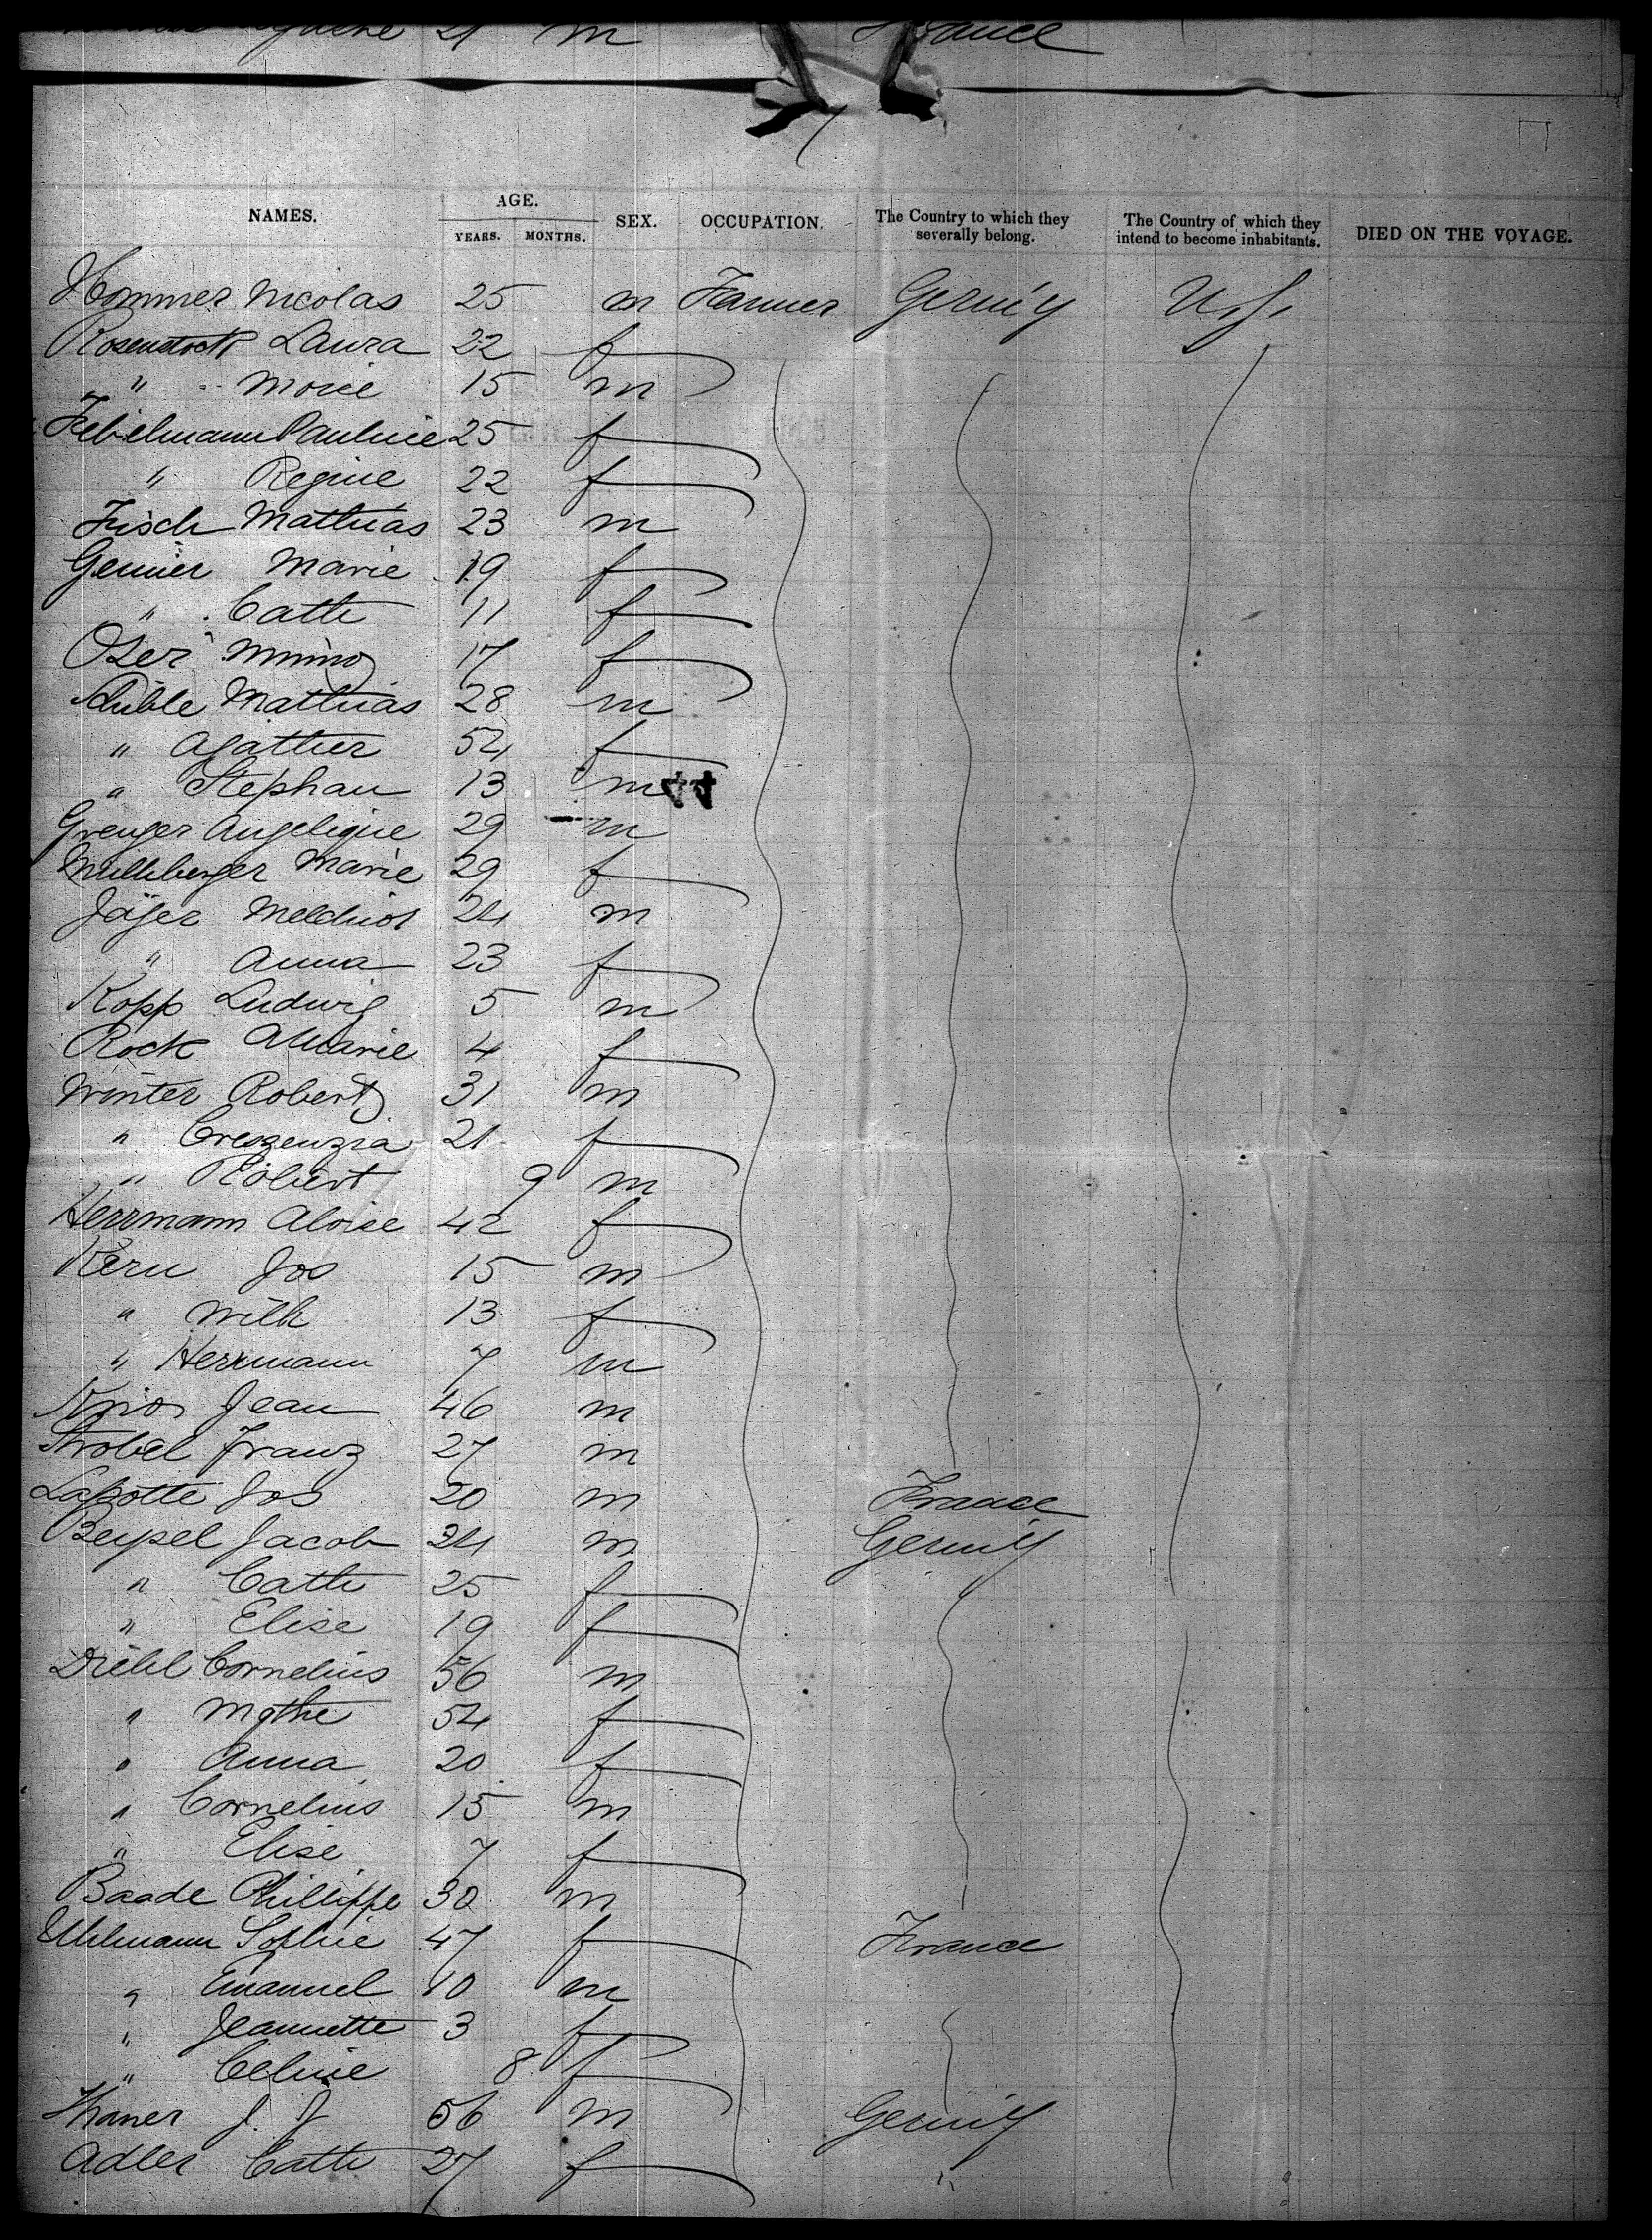 21 m France
7
NAMES. AGE. YEARS. MONTHS. SEX. OCCUPATION. The Country to which they severally belong. The Country of which they intend to become inhabitants. DIED ON THE VOYAGE.
Hommer Nicolas 25 m Farmer Germ'y U.S.
Rosenstock Laura 22 f
" Morie 15 m
Pauline 25 f
" Regine 22 f
Fisch Mathias 23 m
Marie 19 f
" Cath 11 f
Oser 17 f
Mathias 28 m
" 54 f
" Stephan 13 m
Angelique 29 m
Marie 29 f
Jäger Melchior 24 m
" Anna 23 f
Kopp Ludwig 5 m
Rock AMarie 4 f
Winter Robert 31 m
" Creszenzia 21 f
" Robert 9 m
Herrmann Aloise 42 f
Kern Jos 15 m
" Wilh 13 f
" Herrmann 7 m
Jean 46 m
Strobel Franz 27 m
Lapotte Jos 20 m France
Beysel Jacob 24 m Germ'y
" Cath 25 f
" Elise 19 f
Diehl Cornelius 56 m
" Mgthe 54 f
" Anna 20 f
" Cornelius 15 m
" Elise 7 f
Baade Philippe 30 m
Uhlmann Sophie 47 f France
" Emanuel 10 m
" Jeannette 3 f
" Celine 8 f
J. J 56 m Germ'y
Adler Cath 27 f "